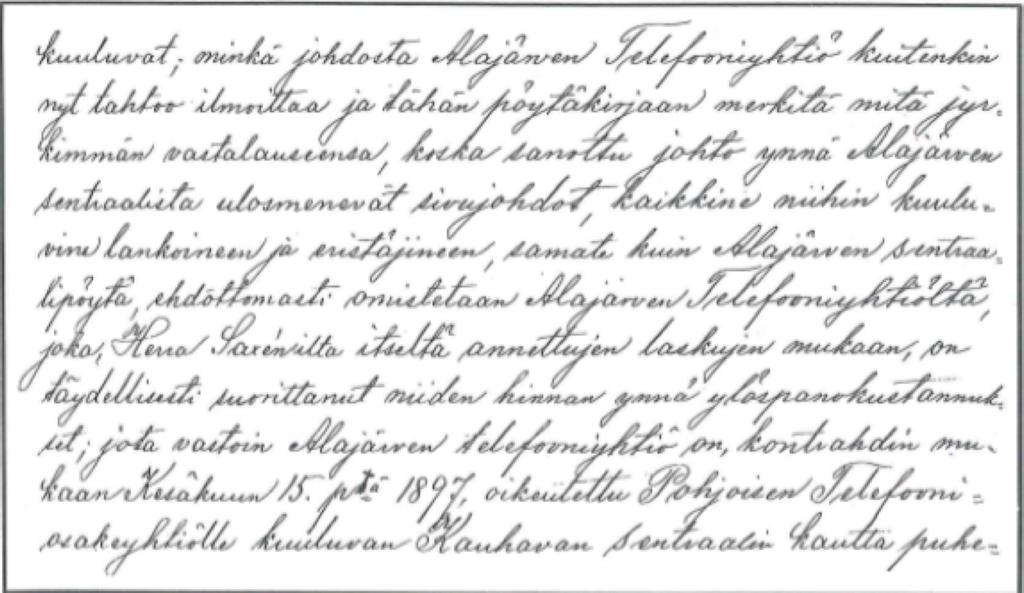 kuuluvat; minkä johdosta Alajärven Telefooniyhtiö kuitenkin
nyt tahtoo ilmoittaa ja tähän pöytäkirjaan merkitä mitä jyr-
kimmän vastalauseensa, koska sanottu johto ynnä Alajärven
sentraalista ulosmenevät sivujohdot, kaikkine niihin kuulu-
vine lankoineen ja eristäjineen, samate kuin Alajärven sentraa-
lipöytä, ehdottomasti omistetaan Alajärven Telefooniyhtiöltä,
joka, Herra Saxénilta itseltä annettujen laskujen mukaan, on
täydellisesti suorittanut niiden hinnan ynnä ylöspanokustannuk-
set; jota vastoin Alajärven telefooniyhtiö on, kontrahdin mu-
kaan Kesäkuun 15. p:tä 1897, oikeutettu Pohjoisen Telefooni=
osakeyhtiölle kuuluvan Kauhavan Sentraalin kautta puhe=